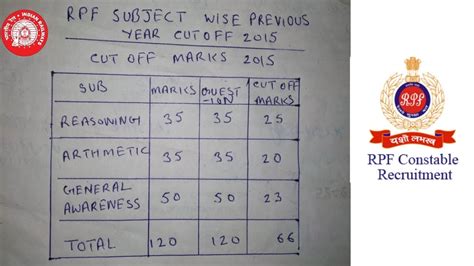 RPF SUBJECT WISE PREVIOUS
YEAR CUTOFF 2015
CUT OFF MARKS 2015
SUB MARKS QUEST-ION CUTOFF MARKS
REASONING 35 35 25
ARTHMETIC 35 35 20
GENERAL AWARENESS 50 50 23
TOTAL 120 120 66
RPF
यशो लभस्व
RPF Constable
Recruitment